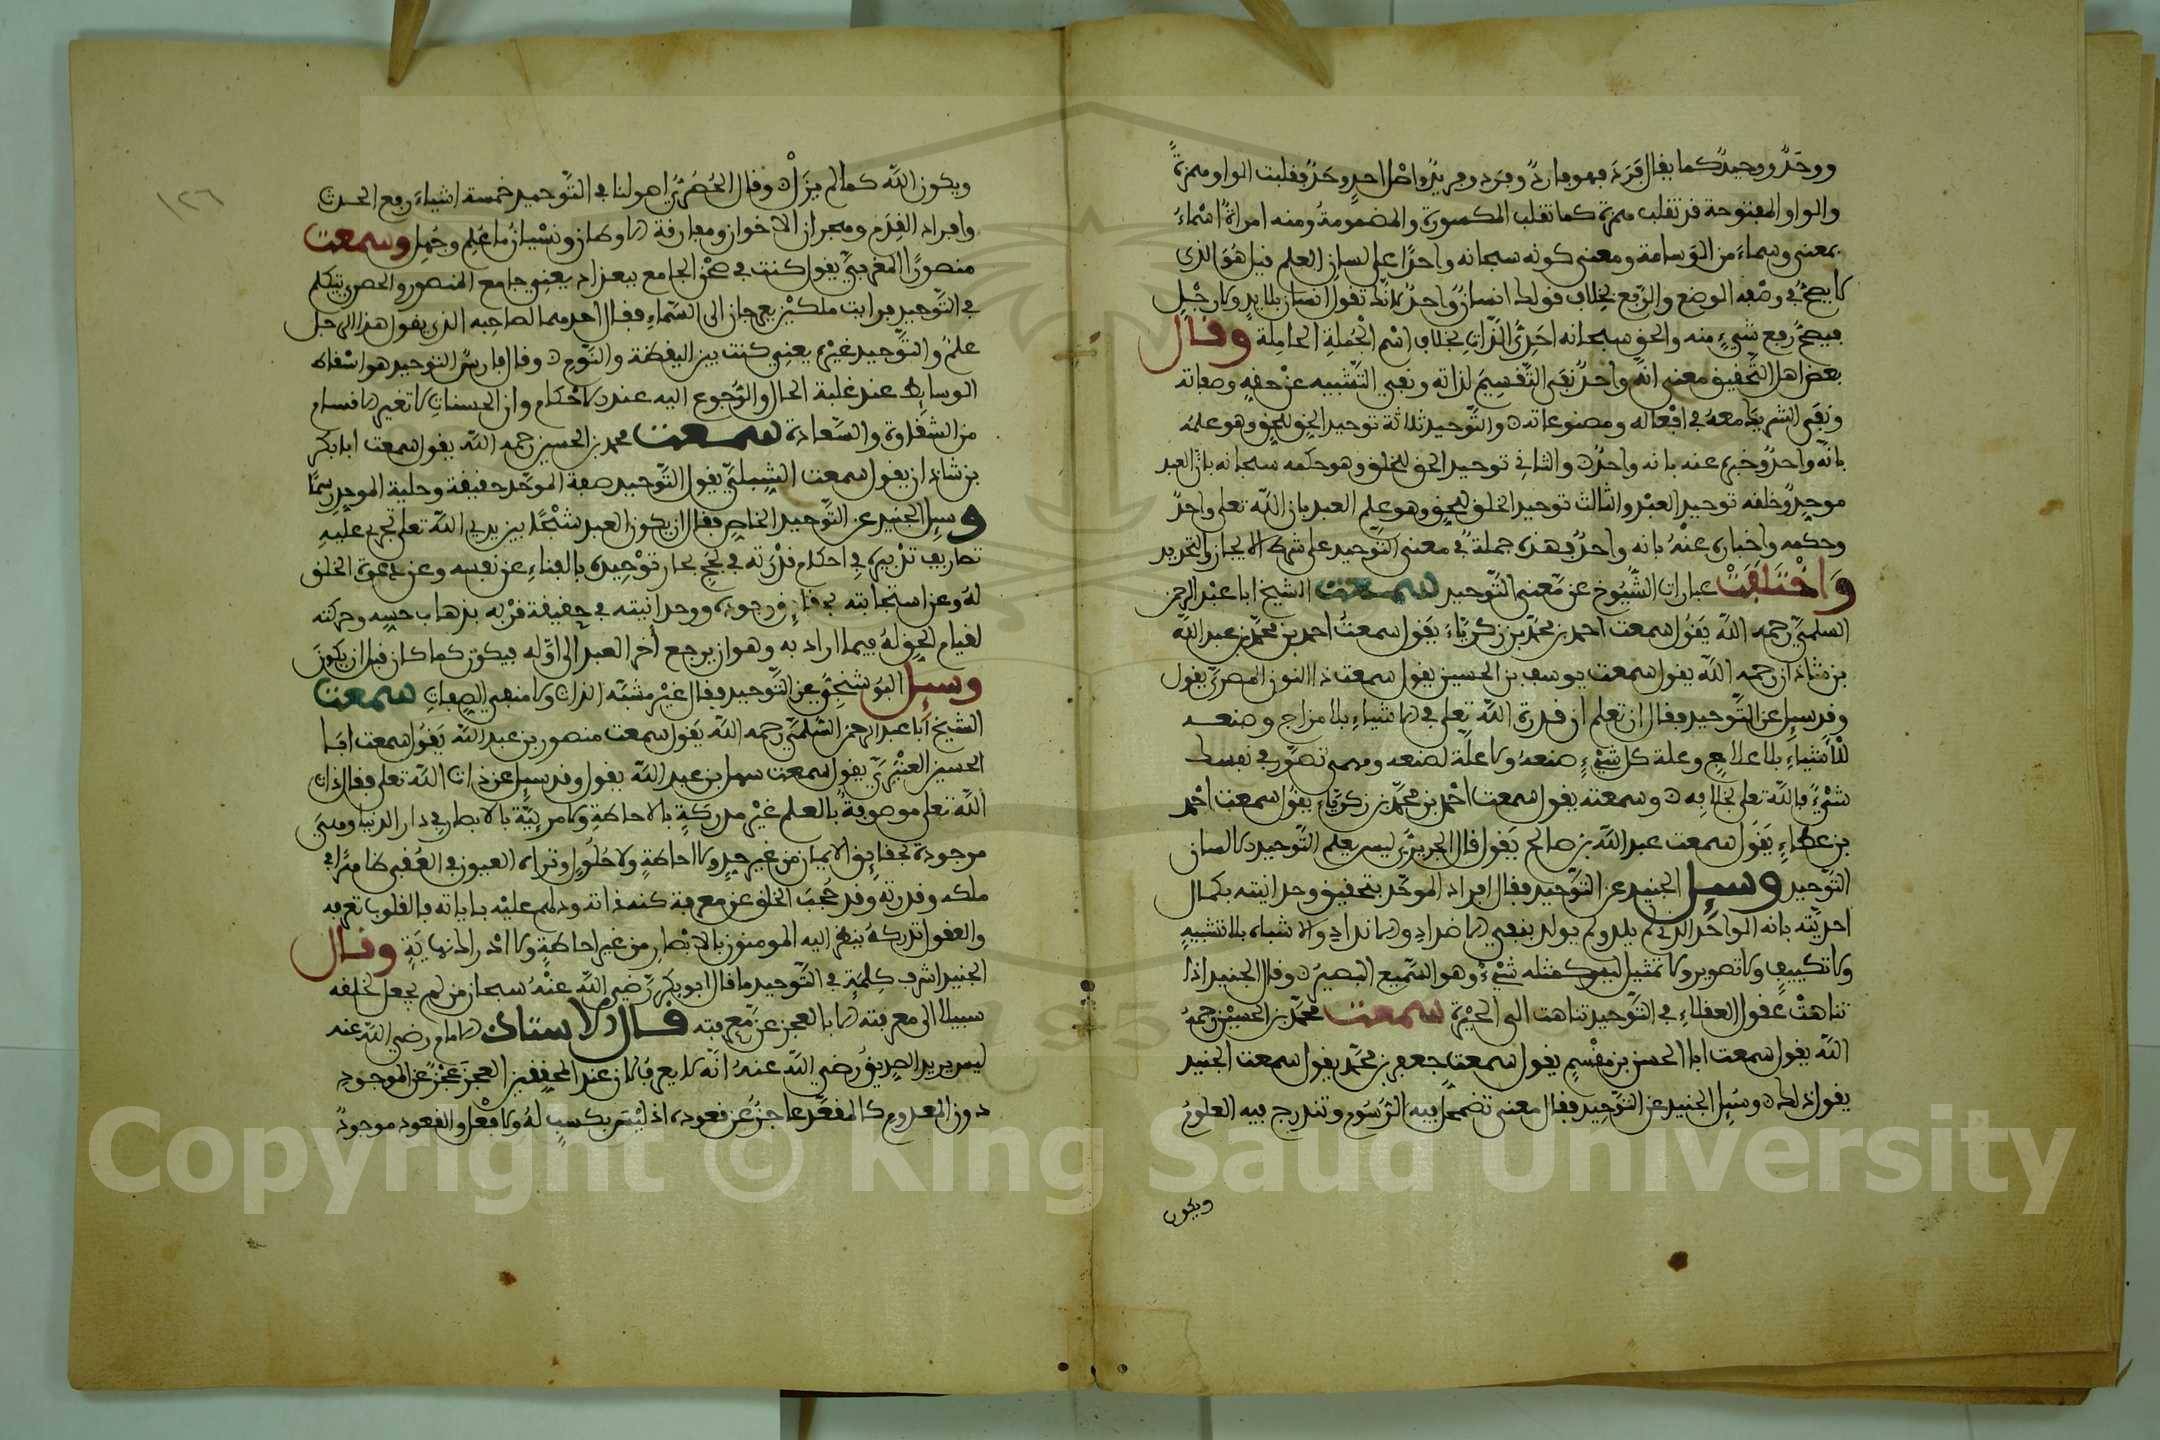 ووحَدٌ ووحيدٌ كما يقال فَرَدَ فهو فاردٌ وفرد وفريدٌ واصْل احدٍ وحَدٌ فقلبت الواو همزةً
والواو المفتوحة قد تقلب همزة كما تقلب المكسورة والمضمومةُ ومنه امراةٌ اسْماءُ
بمعنى وسماءَ من الوَسامة ومعنى كونه سبحانه واحدًا على لسان العلم قيل هُوَ الذى
لا يصحّ في وصْفِه الوضع والرّفع بخلاف قولك انسانٌ واحدٌ لانّك تقول انسان بلا يدٍ ولا رِجْلٍ
فيصحّ رفع شيءٍ منه والحق سبحانه احَدِيّ الذّات بخلاف اسْم الْجُملةِ الحاملة وقال
بعض اهل التّحقيق معنى انّه واحدٌ نَفى التّقسِيم لذاته ونفي التّشبيه عنْ حقه وصفاته
ونفى الشريك معهُ في افْعاله ومصنوعاته والتّوحيد ثلاثة توحيد الحق للحق وهو علمهُ
بانّه واحدٌ وخبره عنه بانه واحدٌ والثاني توحيد الحق للخلق وهو حكمه سبحانه بانّ العبد
موحدٌ وخلقه توحيد العبْد والثّالث توحيد الخلق للحق وهو علم العبد بان الله تعلى واحدٌ
وحكمه واخباره عنْهُ بانه واحدٌ فهذه جملةٌ في معنى التّوحيد على شرط الايجاز والتحديد
وَاخْتَلَفَتْ عبارات الشّيُوخ عن مَعنى التّوحيد سمعت الشيخ ابا عبْد الرحمن
السلميّ رحمه الله يَقُول سمعت احمد بن محمّد بن زكريّاءَ يَقُول سمعتُ احمد بن محمّد بن عبد الله
بن شاذان رحمه الله يقول سمعت يوسف بن الحسين يقول سمعت ذا النون المصريّ يقول
وقد سيِل عن التّوحيد فقال ان تعلم ان قدرة الله تعلى في الاشياءِ بلا مزاج وصنعه
للْأشياءِ بلا علاجٍ وعلة كل شيْءٍ صنعهُ ولا علّة لصنعه ومهمى تصَوّر في نفسك
شيْءٌ فالله تعلى بخلافِه وسمعته يقول سمعت احْمد بن محمّد بن زكريّاء يقُول سمعت احْمد
بن عطاءٍ يَقُول سمعت عبد الله بن صالح يَقُول قال الجريريّ ليس لعلم التّوحيد الا لسان
التّوحيد وسيل الجنيد عن التّوحيد فقال افراد الموحَّد بتحقيق وحدانيته بكمال
احديّته بانه الواحد الذي لم يلد ولم يولد بنفي الاضداد والانداد والاشباه بلا تشبيهٍ
ولا تكييفٍ ولا تصوير ولا تمثيل ليس كمثله شيْءٌ وهو السّميع البصيرُ وقال الجنيد اذا
تناهتْ عقول العقلاءِ في التّوحيد تناهت الى الحيْرة سمعت محمّد بن الحسيْن رحمهُ
الله يقول سمعت ابا الحسن بن مِقْسمٍ يقول سمعت جعفر بن محمّد يقول سمعت الجنيد
يقول ذلك وسُيِل الجنيد عن التّوحيد فقال معنى تضمحل فيه الرّسُوم وتندرج فيه العلومُ
ويكون
١٢٦
ويكون الله كما لم يزَلْ وقال الحُصْريّ اصولنا في التّوحيد خمسة اشياءَ رفع الحدث
وافراد القِدَم وهجران الاخوان ومفارقة الاوطان ونسْيانُ ما عُلِم وجُهِل وسمعت
منصورًا المغربيّ يقول كنت في صحْن الجامع ببغداد يعني جامع المنصور والحصري يتكلم
في التّوحيد فرايت ملكيْن يعرجان الى السّماءِ فقال احدهما لصاحبه الذي يقول هذا الرجل
علمٌ والتّوحيد غيْره يعني كنت بين اليقظة والنّوم وقال فارسٌ التّوحيد هو اسْقاط
الوسايط عند غلبة الحال والرّجوع اليه عند الاحْكام وان الحسنات لا تغير الاقسام
من الشقاوة والسّعادة سمعت محمد بن الحسين رحمه الله يقول سمعت ابا بكر
بن شاذان يقول سمعت الشبليّ يقول التّوحيد صفة الموحّد حقيقة وحلية الموحد رسمًا
وسيل الجنيد عن التّوحيد الخاص فقال ان يكون العبد شبْحًا بين يدي الله تعلى تجري عليه
تصاريف تدْبيره في احكام قدْرته في لجج بحار توْحِيده بالفناءِ عن نفسه وعن دعوة الخلق
لهُ وعن استجابته بحقايق وجوده ووحدانيته في حقيقة قرْبه بذهاب حسه وحركته
لقيام الحق لهُ فيما اراد به وهو ان يرجع أخر العبد الى اوّله فيكون كما كان قبل ان يكونَ
وسيل البُوشَنجيّ عن التّوحيد فقال غيْر مشبّه الذات ولا منفي الصفات سمعت
الشيخ أبا عبد الرحمن السّلميّ رحمه الله يَقُول سمعت منصور بن عبد الله يَقُول سمعت ابَا
الحسين العنبَريّ يقول سمعت سهل بن عبد الله يقول وقد سيل عن ذات الله تعلى فقال ذات
الله تعلى موصوفةٌ بالعلم غيْر مدركةٍ بالاحاطةِ ولا مرئيّة بالابصار في دار الدنيا وهيَ
موجودة بحقايق الايمان من غير حدٍ ولا احاطةٍ ولا حُلُولٍ وتراه العيون في العُقبى ظاهرًا في
ملكه وقدرته وقد حجبَ الخلق عن معرفة كنه ذاته ودلهم عليْه باياته فالقلوب تعرفه
والعقول لا تدركهُ ينظر اليه المومنون بالابْصارِ من غير احاطةٍ ولا ادْراك نهايَةٍ وقال
الجنيد اشرف كلمةٍ في التّوحيد ما قال ابو بكر رَضي الله عنْهُ سبحان من لم يجعل لخلقه
سبيلا الى معرفته الا بالعجز عن معرفته قال الاستاذ الامام رضي الله عنه
ليس يريد الصديقُ رضي الله عنهُ انّه لا يعرف لان عند المحققين العجزَ عَجْزٌ عن الموجودِ
دون المعدوم كالمقعَد عاجزٌ عن قعوده اذ ليْسَ بكسبٍ لهُ ولا فعْل والقعود موجودٌ
Copyright © King Saud University